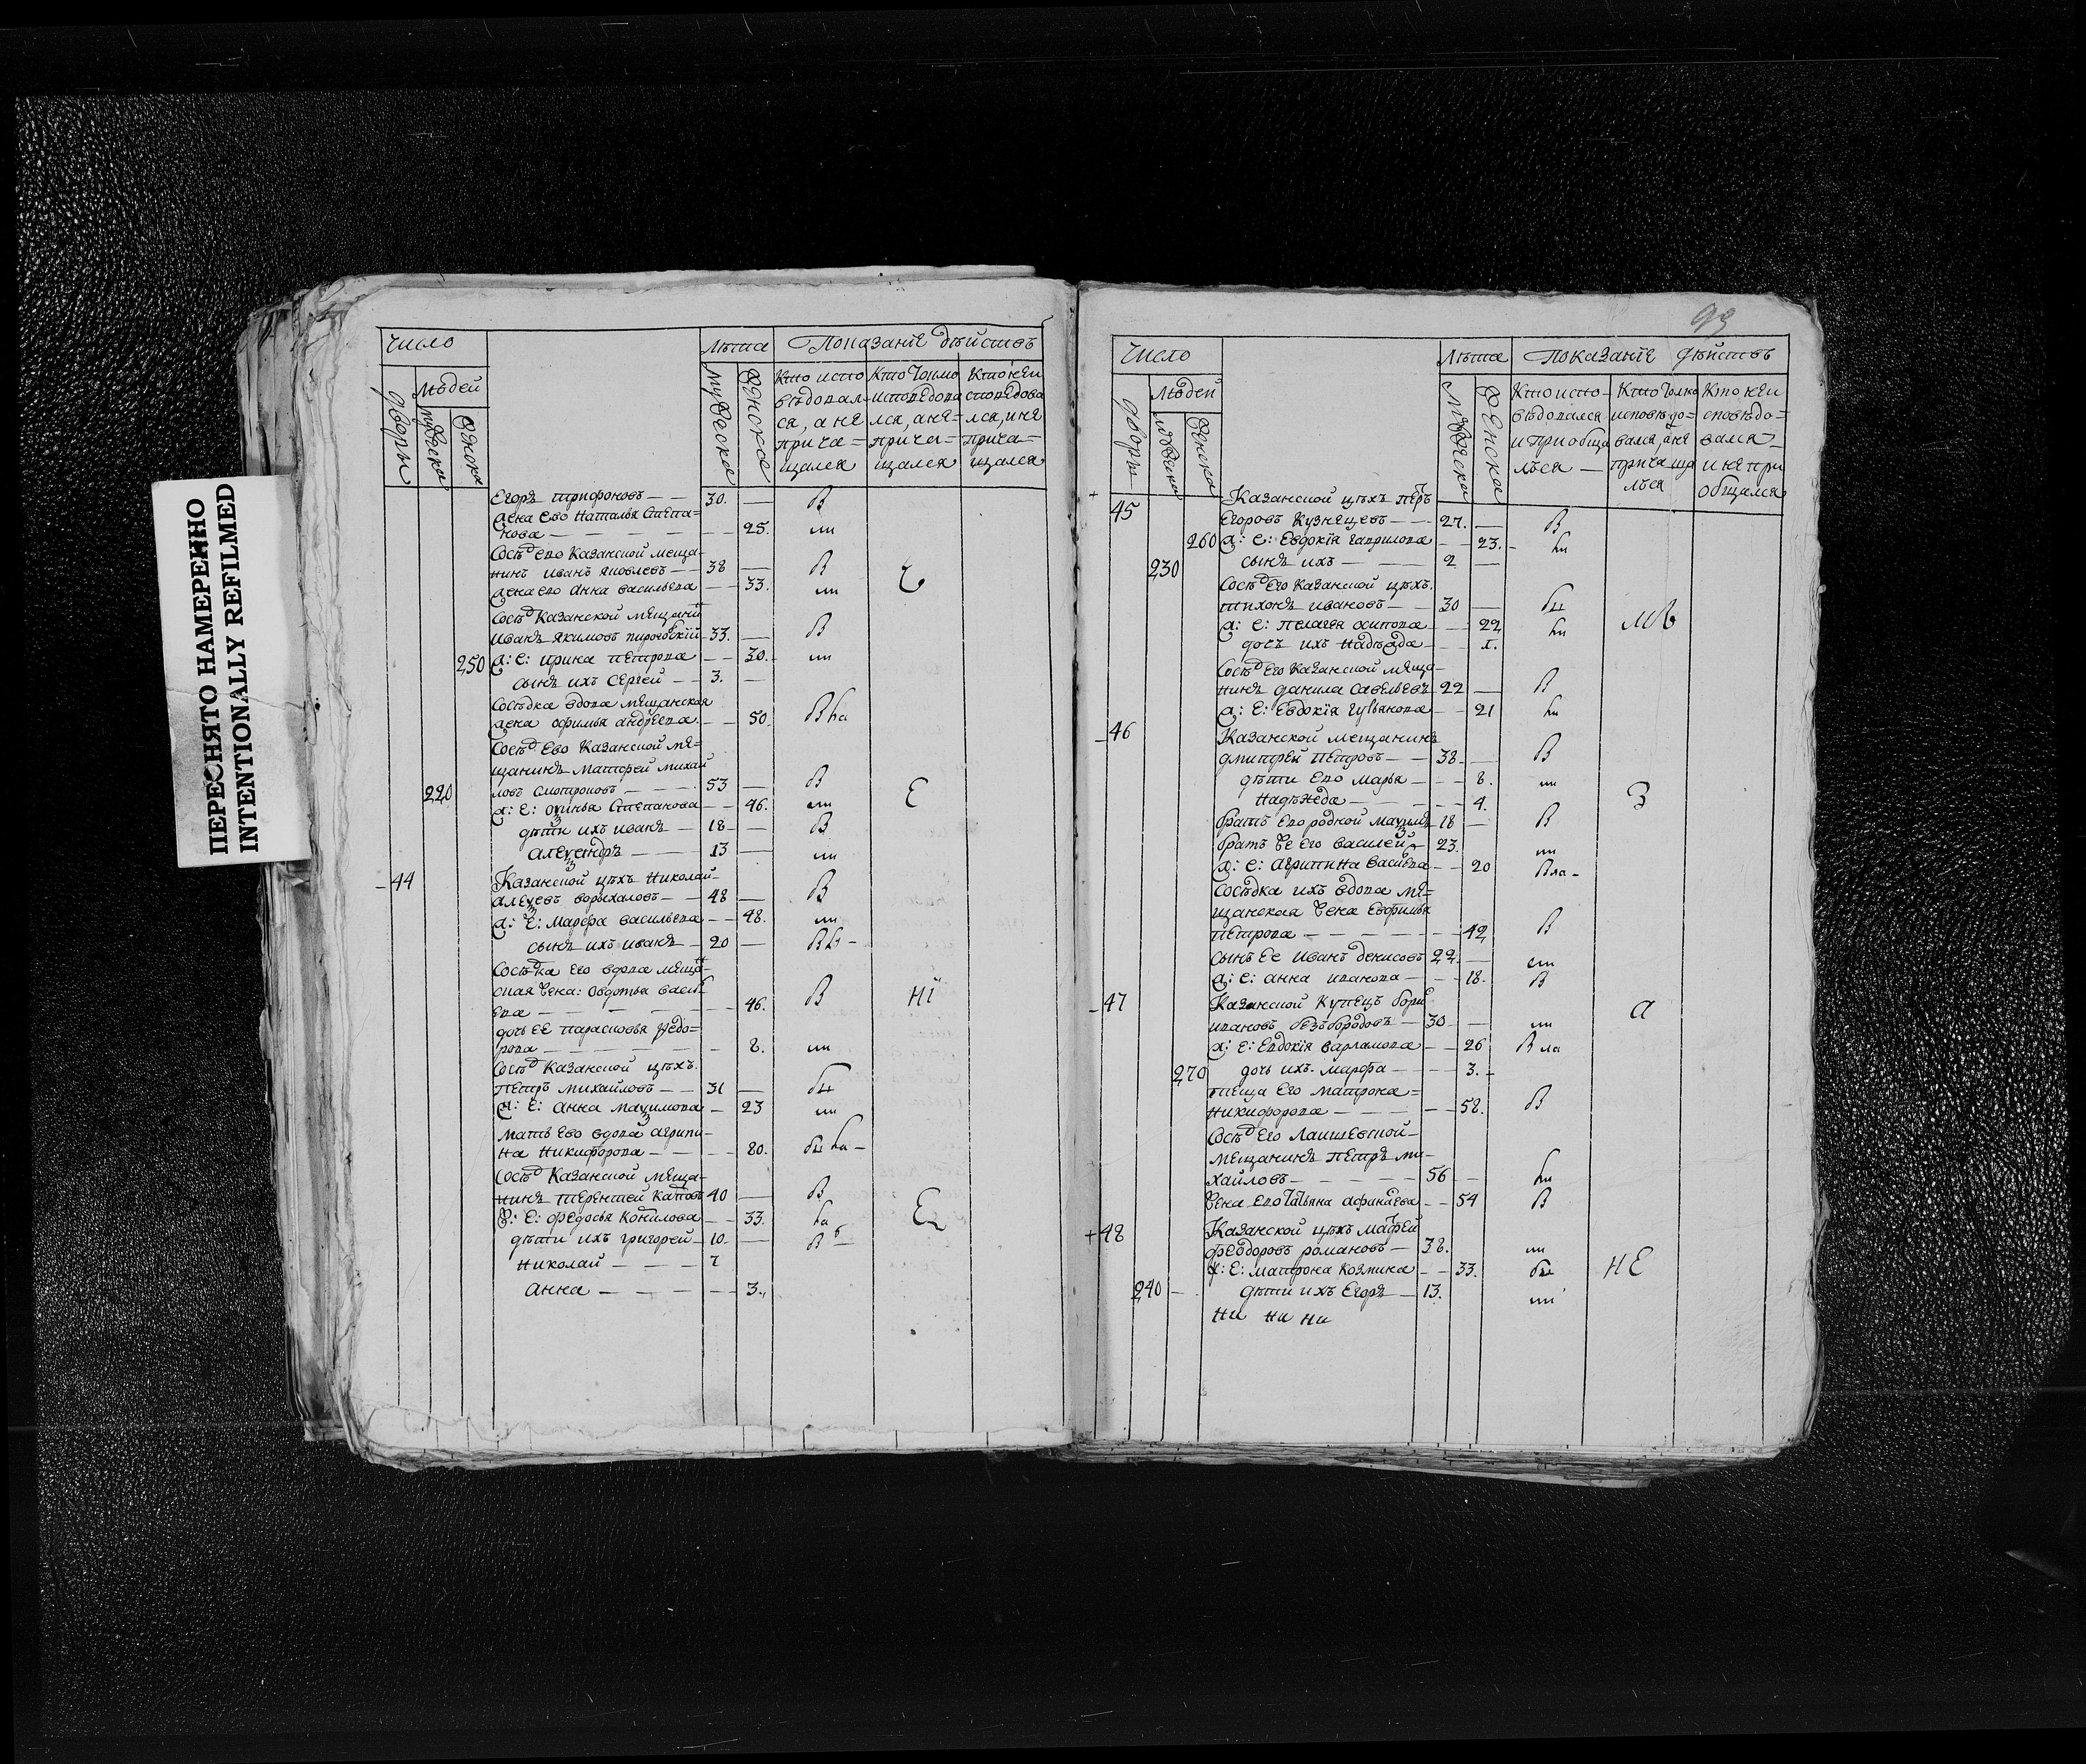 ПЕРЕСНЯТО НАМЕРЕННО
INTENTIONALLY REFILMED
Число Лѣта Показанїе дѣйствъ
дворы людей мужеска женска мужеска женска
Кто испо
вѣдовал
ся, а не
прича=
щался
Кто токмо
исповѣдова
лся, а не=
прича=
щался
Кто не и
сповѣдова
лся, и не
прича=
щался
Егоръ трифоновъ — 30. — В
жена ево Наталья Степа=
нова — 25. ли
Сосѣд ево Казанской меща-
нинъ иванъ яковлевъ — 38 — В
жена ево Анна васильева — 33. ли
Сосѣд Казанской мещани
иванъ якимовъ — 33. — В
250 ж: е: ирина петрова — 30. ли
сынъ ихъ Сергей — 3. —
Сосѣдка вдова мещанская
жена офимья андреева — 50.
Сосѣд ево Казанской ме=
щанинъ матфей михай
220 ловъ — 53 — В Е
ж: е: Степанова — 46. ли
дѣти ихъ иванъ — 18 — В
александръ — 13 — ли
44 Казанской цѣхъ николай
— 48 — В
ж: е: марфа васильева — 48. ли
сынъ ихъ иванъ — 20 —
Сосѣдка его вдова меща-
ская жена: овдотья васил
ева — 46. В НІ
дочь ее парасковья федо=
рова — 8. ли
Сосѣд Казанской цѣхъ.
петръ михайловъ — 31 —
ж: е: анна максимова — 23 ли
мать ево вдова агрипи-
на никифорова — 80.
Сосѣд Казанской меща-
нинъ терентей 40 — В
ж: е: федосья — 33.
дѣти ихъ григорей — 10 —
николай — 7
анна — 3.
93
Число Лѣта показанїе дѣйствъ
дворы людей мужеска женска мужеска женска
Кто испо-
вѣдовался
и приобща
лъся —
Кто толко
исповѣдо=
вался, а не
причаща
лъся
Кто не и
сповѣдо=
вался
и не при
общался
45 Казанской цѣхъ петръ
Егоровъ Кузнецовъ — 27. — В
260 ж: е: Евдокїя гаврилова — 23.
230 сынъ ихъ — 2 —
Сосѣд Его Казанской цѣхъ.
тихонъ ивановъ — 30 —
ж: е: пелагея осипова — 22
дочь ихъ надѣжда —
Сосѣд Его Казанской меща-
нинъ данила савельевъ 22 — В
ж: е: Евдокїя — 21
46 Казанской мещанинъ
дмитрей петровъ — 38. — В
дѣти Ево марья — 8. ли
надѣжда — 4. З
братъ Ево родной максимъ 18 — В
братъ же его василей — 23. ли
ж: е: агрипина василева — 20
Сосѣдка ихъ вдова ме=
щанская жена Евфимья
петрова — 42 В
сынъ ее иванъ денисовъ 22. — ли
ж: е: анна иванова — 18. В
47 Казанской Купецъ борис
ивановъ безбородовъ — 30 — ли а
ж: е: Евдокїя варламова — 26
270 дочь ихъ марфа — 3.
теща Его матрона=
никифорова — 58. В
Сосѣд Его Лаишевской
мещанинъ петръ ми-
хайловъ — 56
жена ево татьяна афанасева — 54 В
48 Казанской цѣхъ матфей
феодоровъ романовъ — 38. ли
ж: е: матрона козмина — 33. НЕ
240 дѣти ихъ Егоръ — 13. ли
ни ни ни